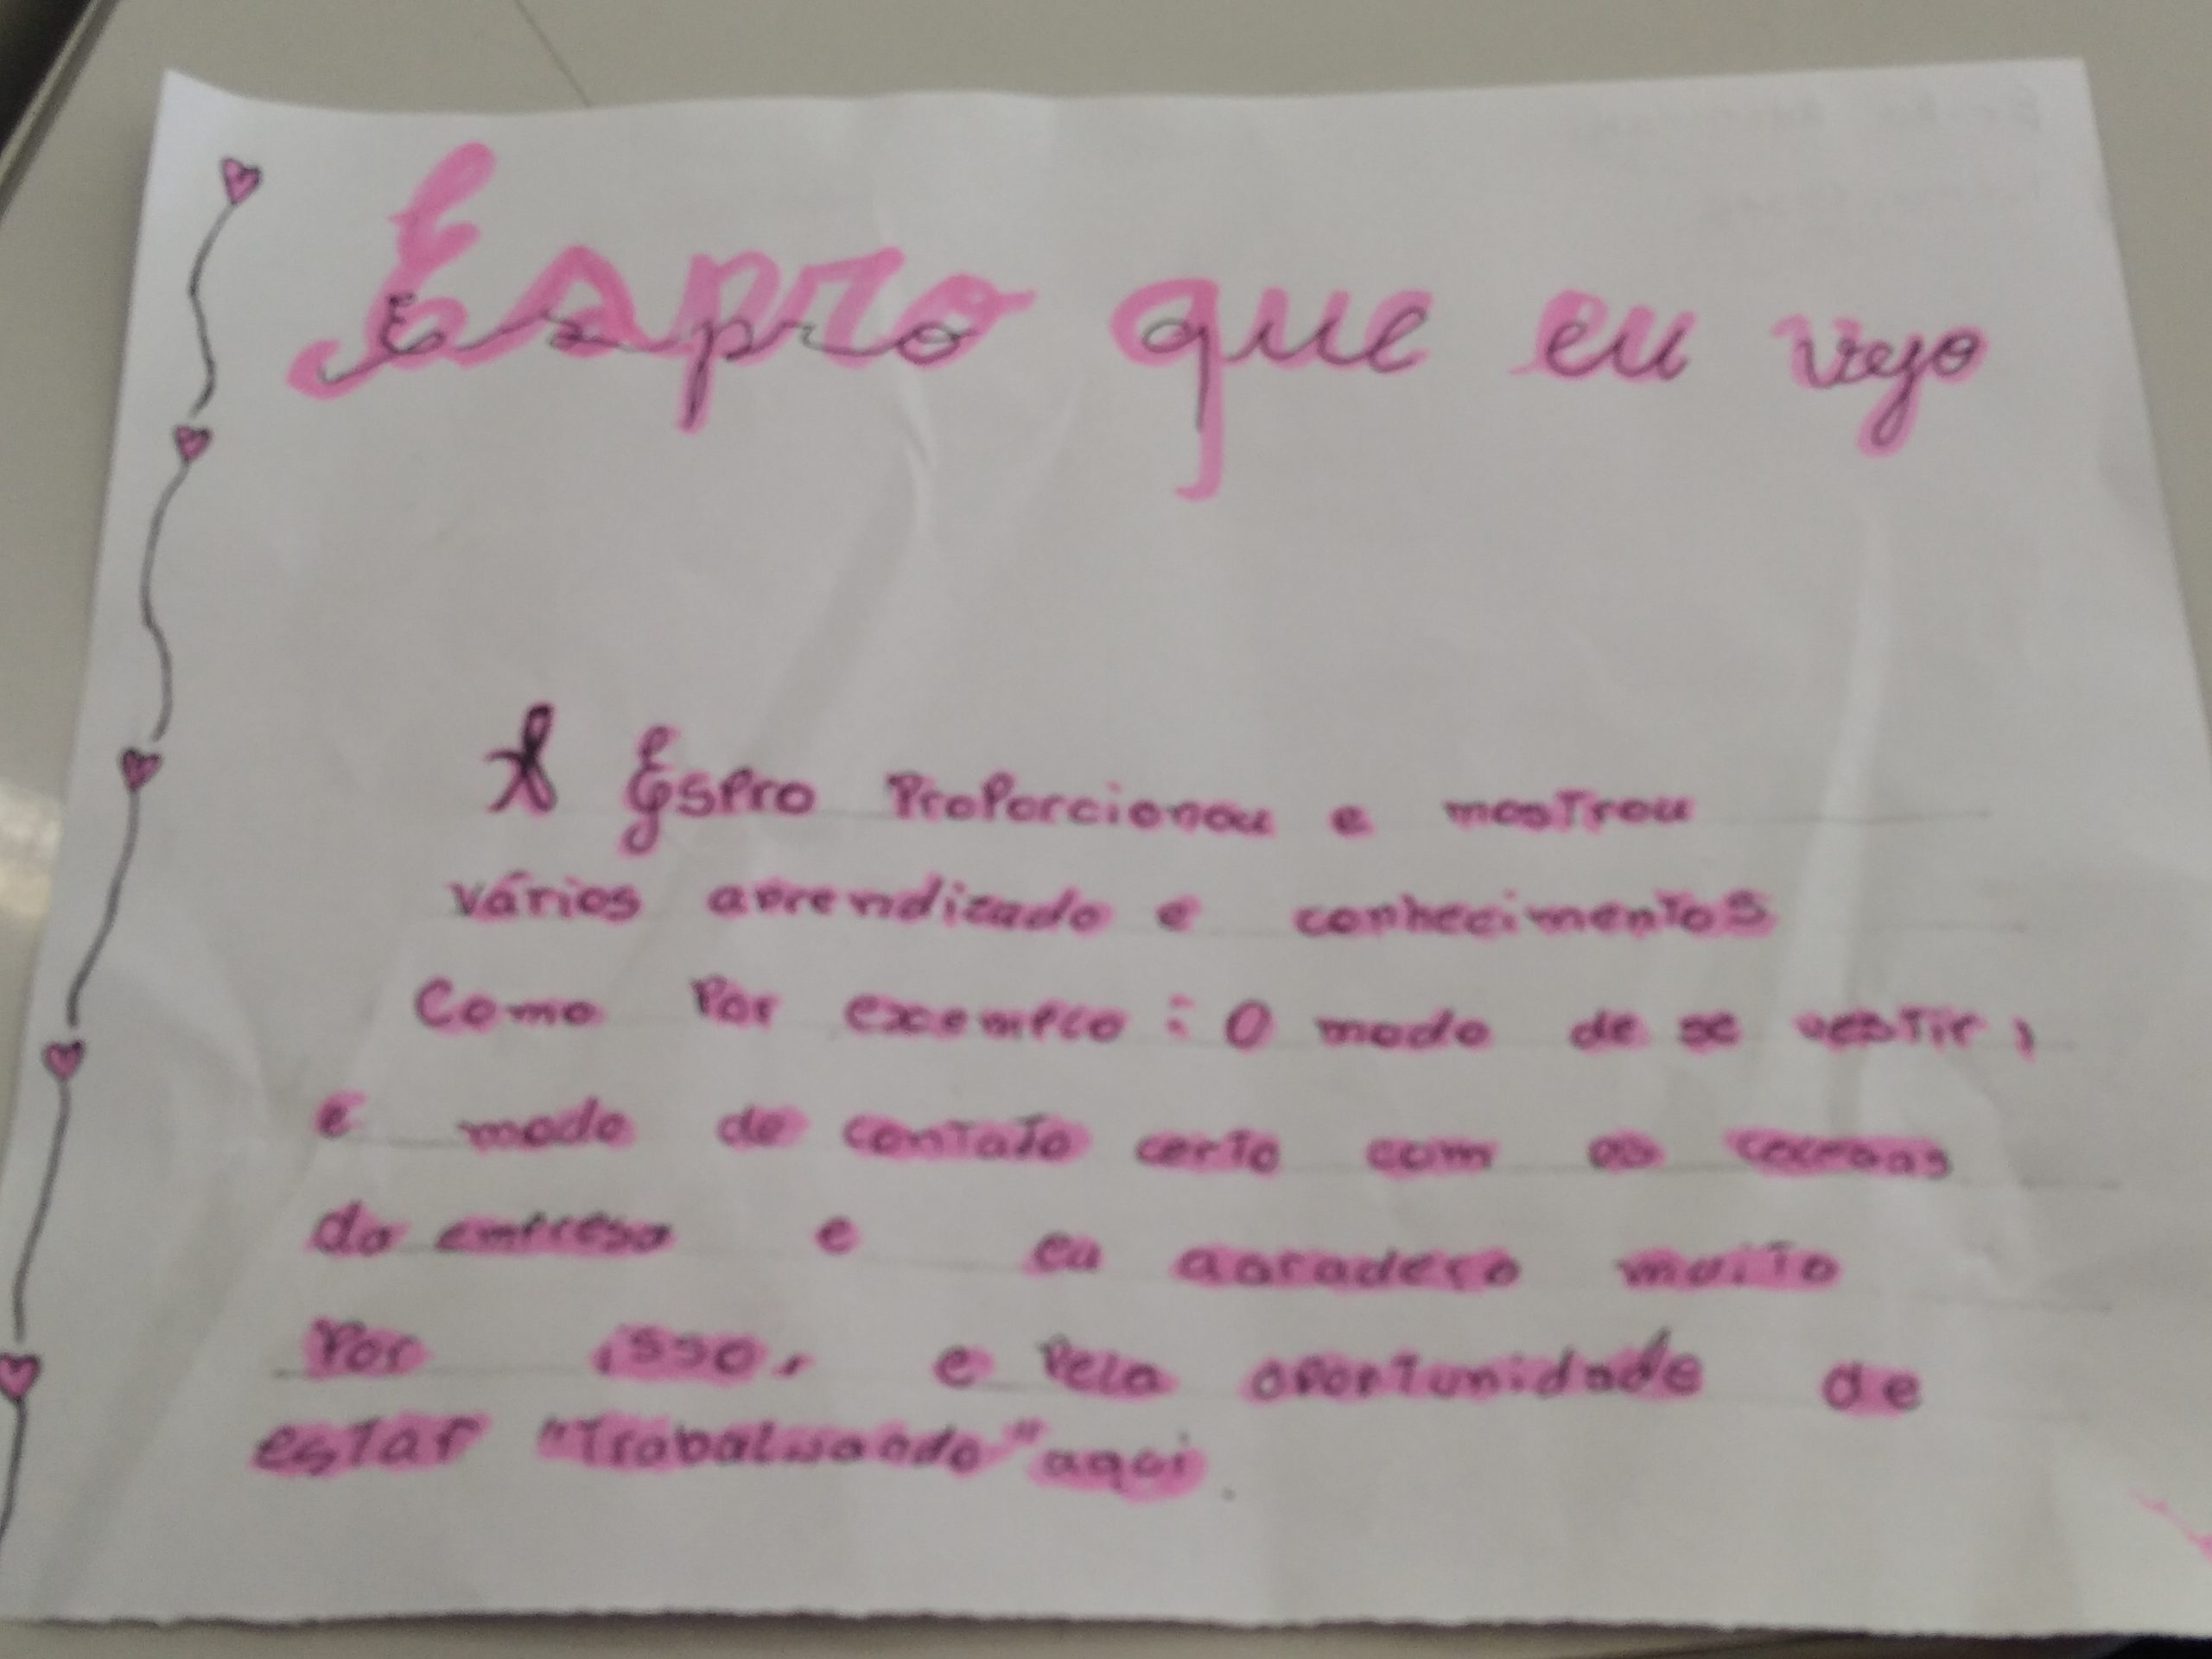 Espro que eu vejo
A Espro Proporcionou e mostrou
vários aprendizado e conhecimentos
Como Por exemplo : O modo de se vestir,
e modo de contato certo com as
da empresa e eu agradeço muito
Por isso, e Pela oportunidade de
estar "Trabalhando" aqui.